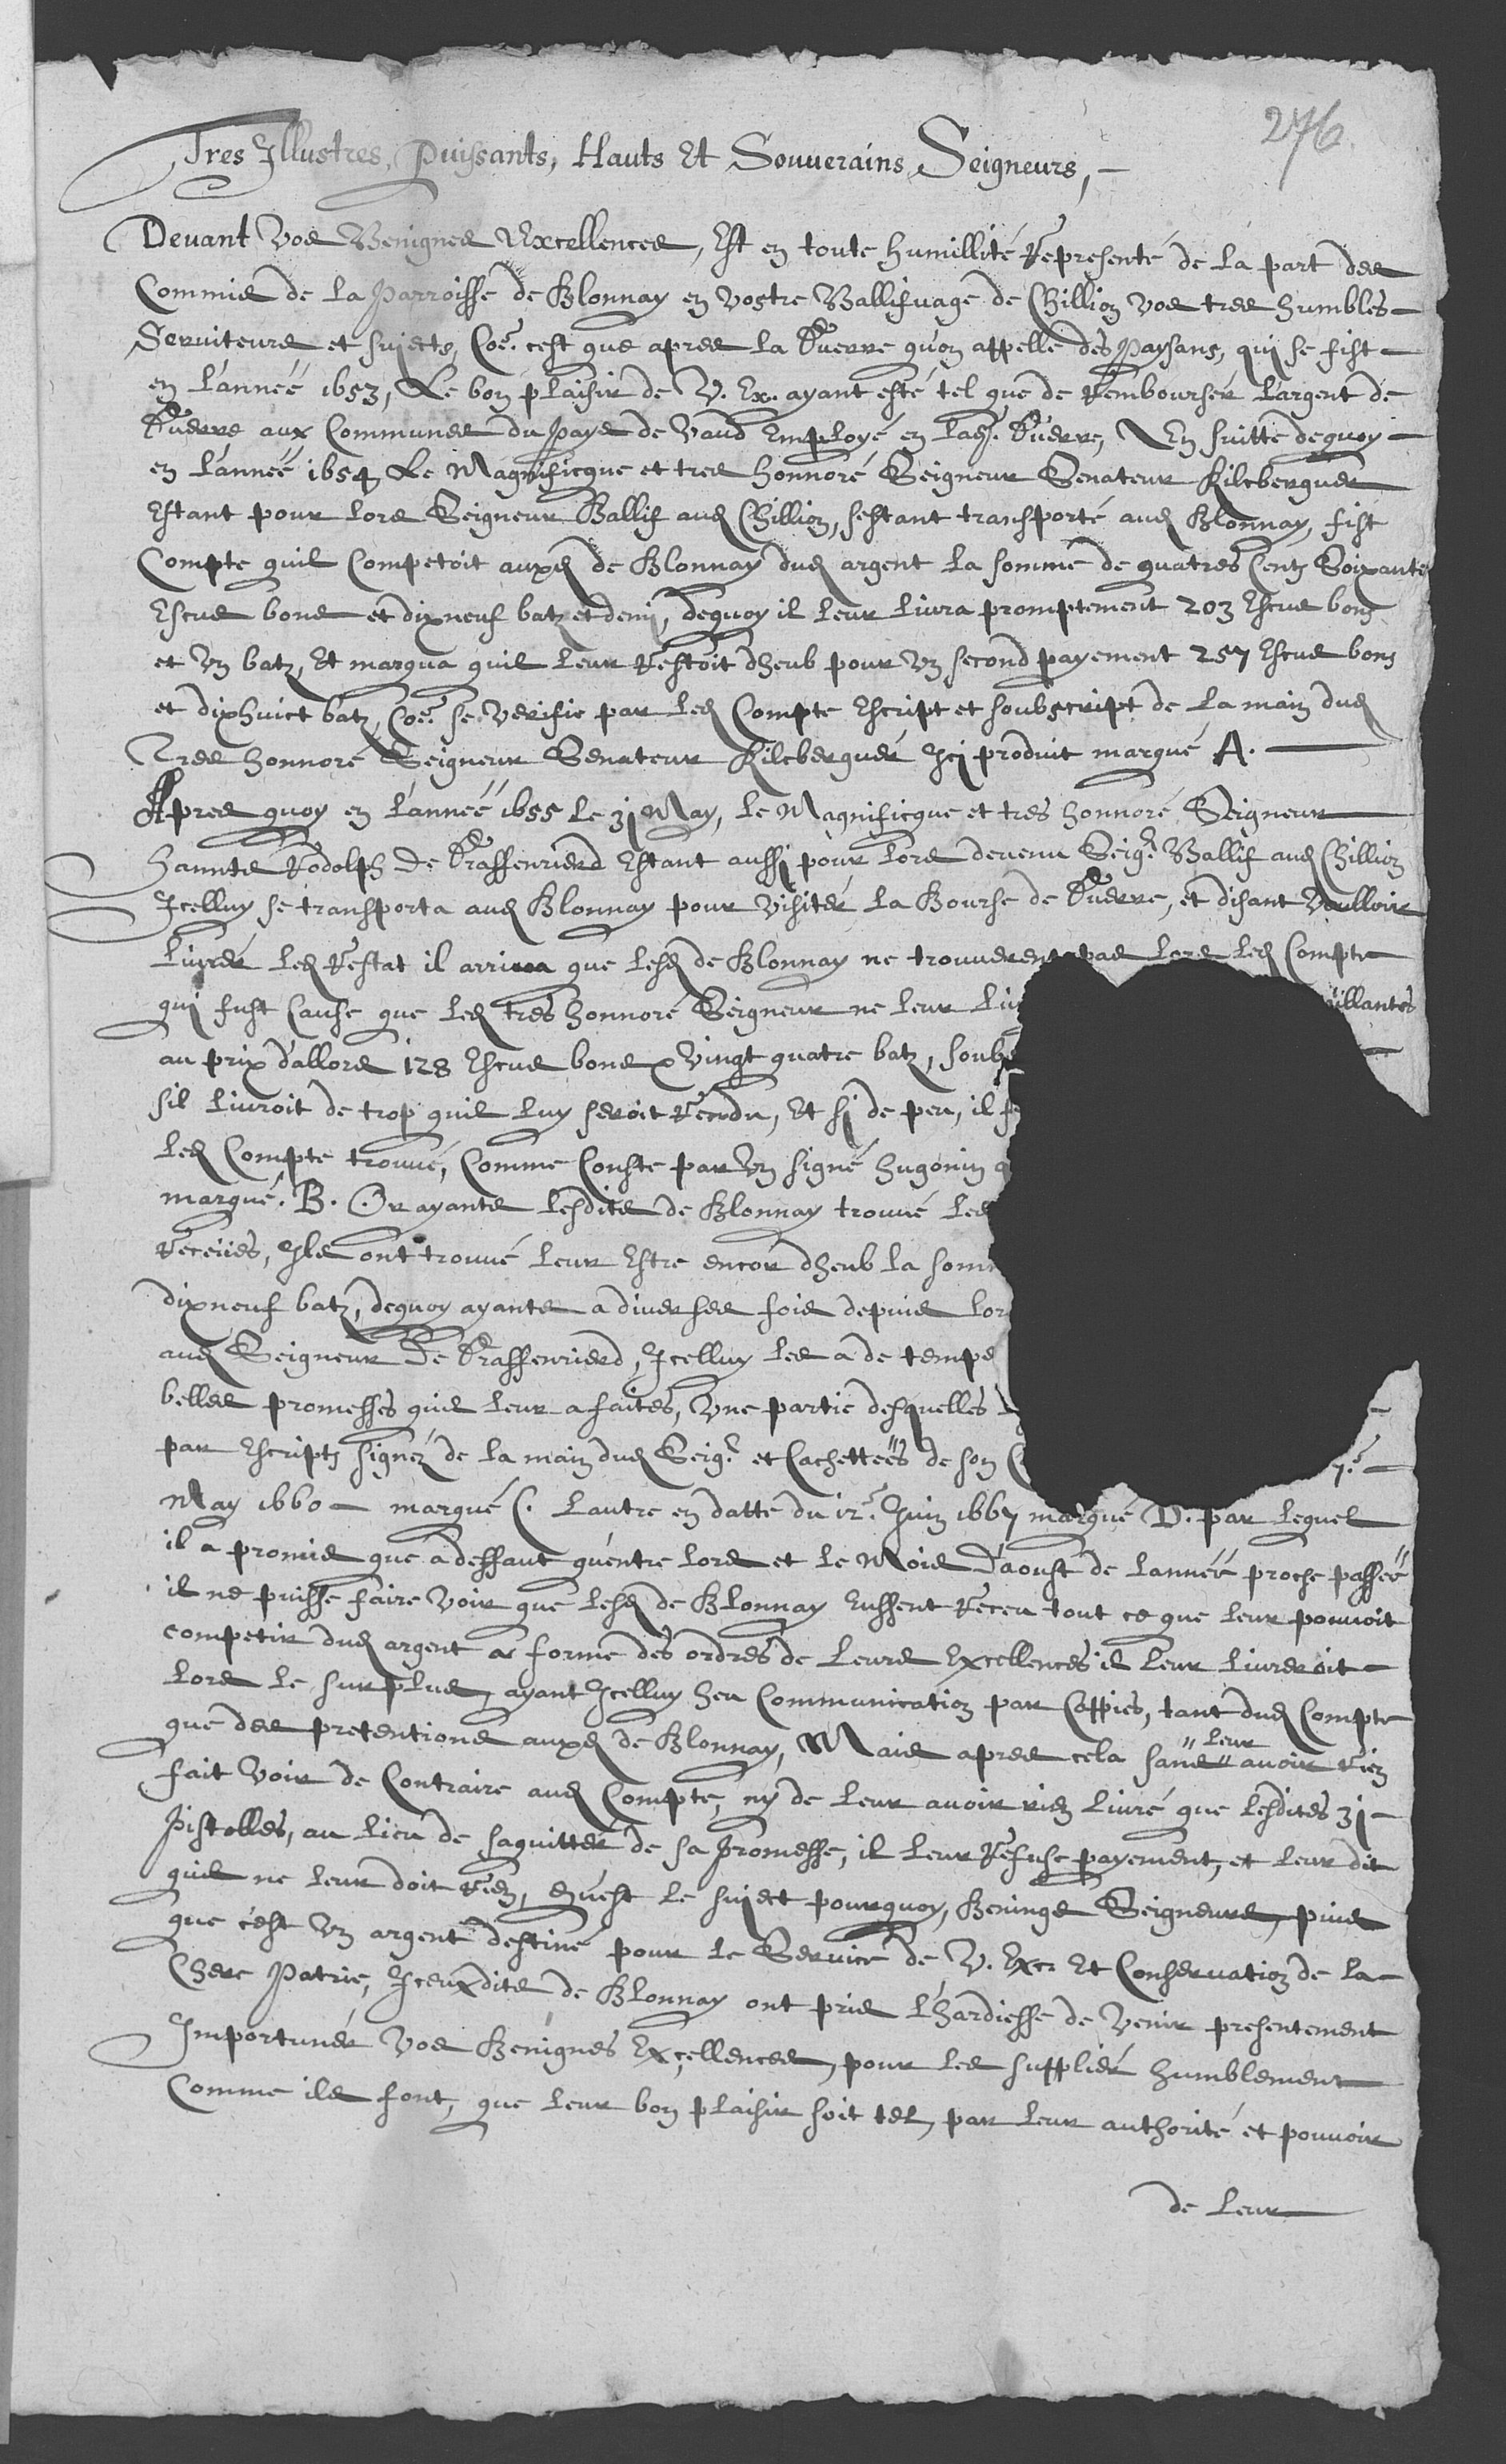 276.
Tres Illustres, Puissants, Hauts Et Souuerains Seigneurs,
Deuant vos Benignes Excellences, Est en toute humillité Representé de la part des
Commis de la Parroisse de Blonnay en vostre Ballifuage de Chillion vos tres humbles
Seruiteurs et sujects, Coe. cest que apres la Guerre qu'on appelle des Paysans, qui se fist
en l'année 1653, Le bon plaisir de V. Ex. ayant esté tel que de Rembourser l'argent de
Guerre aux Communes du Pays de Vaud Employé en lad. Guerre, En suitte dequoy
en l'année 1654 Le Magnificque et tres honnoré Seigneur Senateur Kilcberguer
Estant pour lors Seigneur Ballif aud Chillion, sestant transporté aud Blonnay, fist
Compte quil Competoit auxd de Blonnay dud argent la somme de quatres Centz Soixante
Escus bons et dixneuf batz et demi, dequoy il leur liura promptement 203 Escus bons
et vn batz, Et marqua quil leur Restoit dheub pour vn second payement 257 Escus bons
et dixhuict batz, Coe. se verifie par led Compte Escript et soubscript de la main dud
Tres honnoré Seigneur Senateur Kilcberguer Icj produit marqué A.
Apres quoy en l'année 1655 le 31 May, le Magnificque et tres honnoré Seigneur
Hannts Rodolph De Graffenried Estant aussi pour lors deuenu Seigr. Ballif aud Chillion
Icelluy se transporta aud Blonnay pour visiter la Bourse de Guerre, et disant voulloir
liurer led Restat il arriua que lesd de Blonnay ne trouuerent pas lors led Compte
qui fust Cause que led tres honnoré Seigneur ne leur liu
au prix d'allors 128 Escus bons vingt quatre batz, soubz
sil liuroit de trop quil luy seroit Rendu, Et si de peu, il
led Compte trouué, Comme Conste par vn signé hugonin
marqué. B. Or ayants lesdits de Blonnay trouué led
Receües, Ils ont trouué leur Estre encor dheub la som
dixneuf batz, dequoy ayants a diuerses fois depuis lor
aud Seigneur De Graffenried, Icelluy les a de temps
belles promesses quil leur a faites, vne partie desquelles
par Escripts signez de la main dud Seigr. et Cachettées de son 7e
May 1660 marqué C. Lautre en datte du 12e. Juin 1667 marqué D. par lequel
il a promis que a deffaut qu'entre lors et le Mois d'aoust de l'année proche passée
il ne puisse faire voir que lesd de Blonnay Eussent Receu tout ce que leur pouuoit
competir dud argent a forme des ordres de leurs Excellences il leur liureroit
lors le surplus, ayant Icelluy heu Communication par Coppies, tant dud Compte
que des pretentions auxd de Blonnay, Mais apres cela sans leur auoir Rien
fait voir de Contraire aud Compte, ny de leur auoir rien liuré que lesdites 31
Pistolles, au lieu de saquitter de sa Promesse, il leur Refuse payement, et leur dit
quil ne leur doit Rien, Qu'est le suject pourquoy, Beninge Seigneurs, puis
que c'est vn argent destiné pour le Seruice de V. Exc. Et Conseruation de la
Chere Patrie, Iceuxdits de Blonnay ont pris l'hardiesse de venir presentement
Importuner vos Benignes Excellences, pour les supplier humblement
Comme ils font, que leur bon plaisir soit tel, par leur authorité et pouuoir
de leur